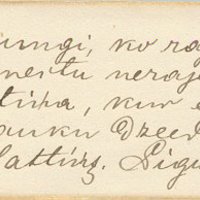 ungi, ko ra
nestu neraj
tiņa, kur e
runku Dzeed
Sattiņz. Sigu